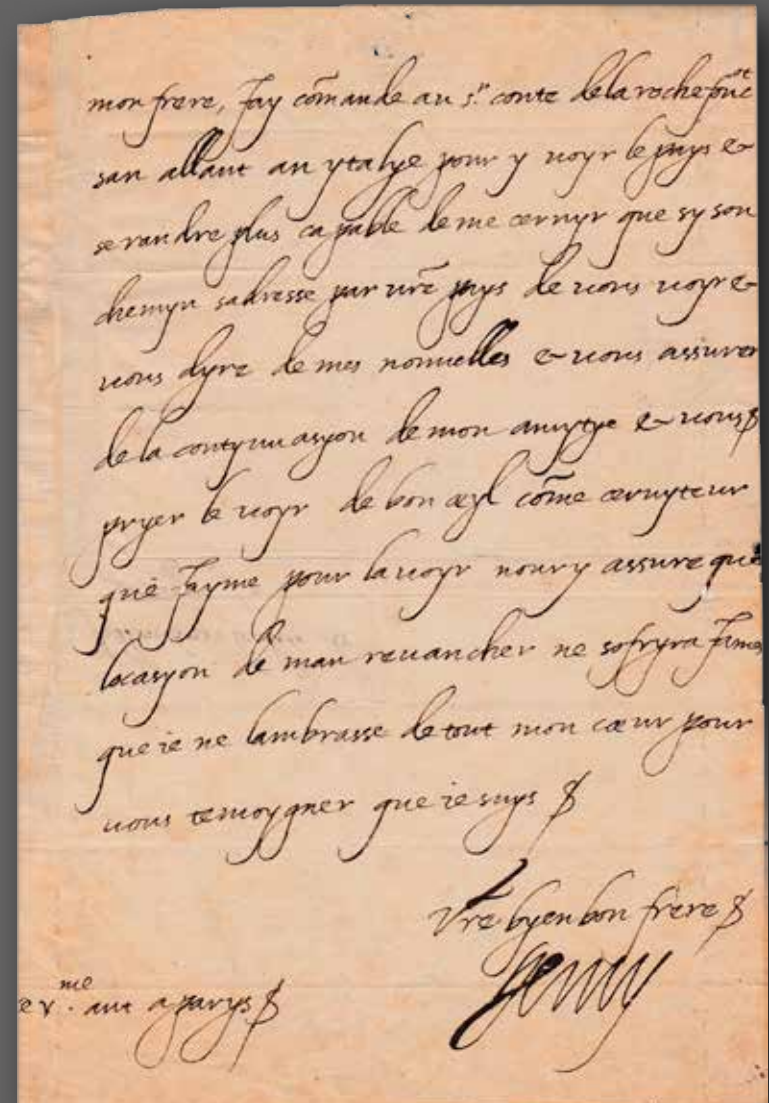 mon frere, Jay cõmande au s.r conte de la rochefouct
san allant an ytalye pour y voyr le pays &
se randre plus capable de me cervyr que sy son
chemyn sadresse par vrẽ pays de vous voyr &
vous dyre de mes nouvelles & vous assurer
de la contynuasyon de mon amytye & vous $
pryer le voyr de bon œyl cõme cervyteur
que Jayme pour lavoyr noury assure que
locasyon de man revancher ne sofryra James
que ie ne lambrasse de tout mon cœur pour
vous temoygner que ie suys $
Vre byen bon frere $
Henry
me aut a parys $